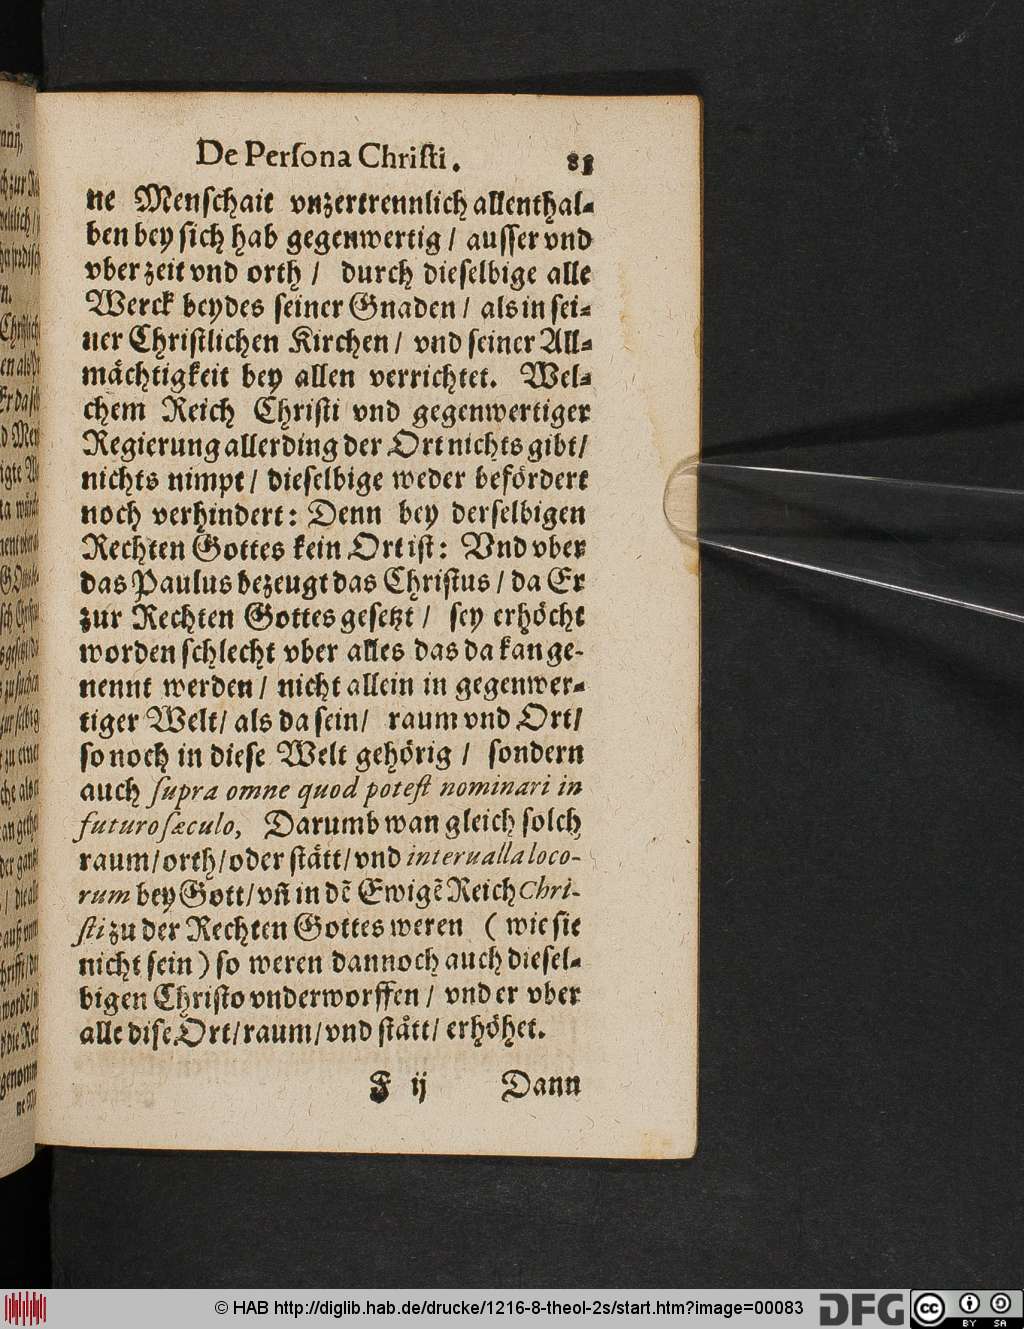 De Persona Christi. 83
ne Menschait vnzertrennlich allenthal-
ben bey sich hab gegenwertig / ausser vnd
vber zeit vnd orth / durch dieselbige alle
Werck beydes seiner Gnaden / als in sei-
ner Christlichen Kirchen / vnd seiner All-
mächtigkeit bey allen verrichtet. Wel-
chem Reich Christi vnd gegenwertiger
Regierung allerding der Ort nichts gibt /
nichts nimpt / dieselbige weder befördert
noch verhindert: Denn bey derselbigen
Rechten Gottes kein Ort ist: Vnd vber
das Paulus bezeugt das Christus / da Er
zur Rechten Gottes gesetzt / sey erhöcht
worden schlecht vber alles das da kan ge-
nennt werden / nicht allein in gegenwer-
tiger Welt / als da sein / raum vnd Ort /
so noch in diese Welt gehörig / sondern
auch supra omne quod potest nominari in
futuro sæculo, Darumb wan gleich solch
raum / orth / oder stätt / vnd interualla loco-
rum bey Gott / vñ in dẽ Ewigẽ Reich Chri-
sti zu der Rechten Gottes weren ( wie sie
nicht sein ) so weren dannoch auch diesel-
bigen Christo vnderworffen / vnd er vber
alle dise Ort / raum / vnd stått / erhöhet.
F ij Dann
© HAB http://diglib.hab.de/drucke/1216-8-theol-2s/start.htm?image=00083
DFG
cc BY SA